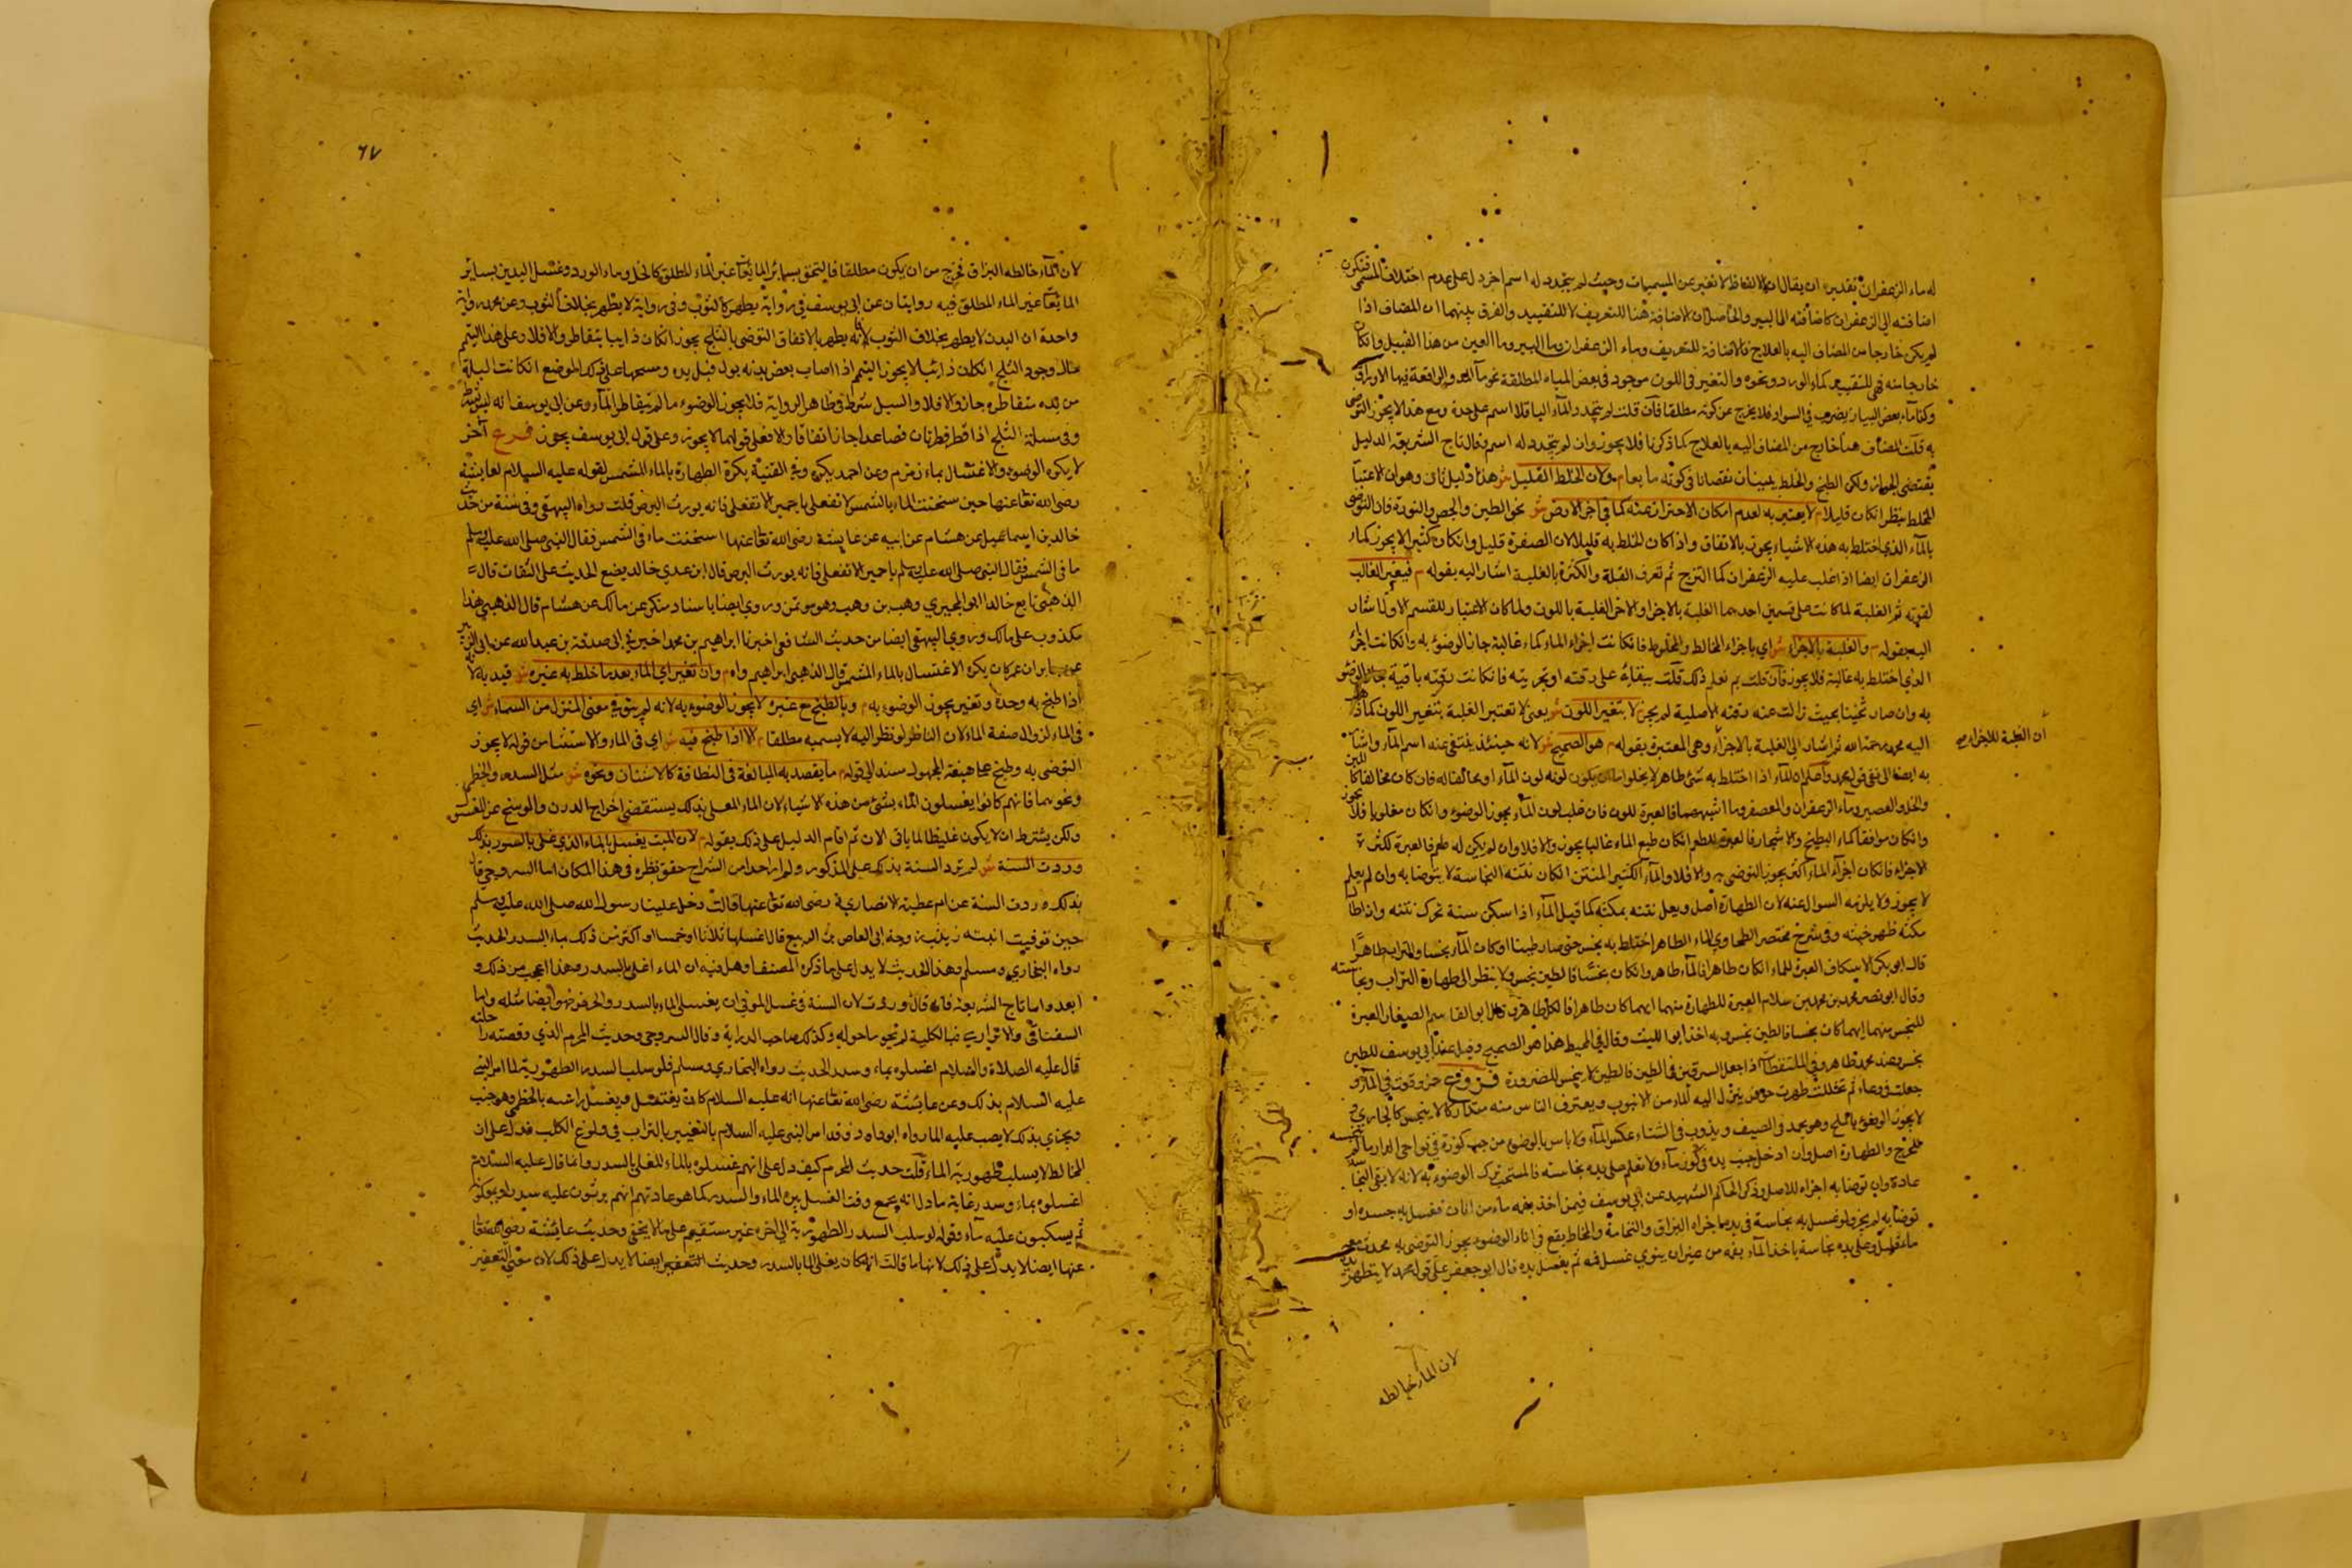 له ماء الزعفران تقديره ان يقال ان الالفاظ لا تغير عن المسميات وحيث لم يتجدد له اسم اخر دل على عدم اختلاف المسمى فتكون
اضافته الى الزعفران كاضافته الى البير والحاصل ان الاضافة هنا للتعريف لا للتقييد والفرق بينهما ان المضاف اذا
لم يكن خارجا من المضاف اليه بالعلاج فالاضافة للتعريف وماء الزعفران وماء البير وماء العين من هذا القبيل وان كان
خارجا منه فهي للتقييد كماء الورد ونحوه والتغير في اللون موجود في بعض المياه المطلقة نحو ماء المد والواقعة فيها الاوراق
وكماء بعض البيار يضرب في السواد فلا يخرج عن كونه مطلقا فان قلت لم يتجدد لماء الباقلا اسم على حدة ومع هذا لا يجوز التوضي
به قلت المضاف هنا خارج من المضاف اليه بالعلاج كما ذكرنا فلا يجوز وان لم يتجدد له اسم وقال تاج الشريعة الدليل
يقتضي الجواز ولكن الطبخ والخلط يثبتان نقصانا في كونه مايعا م ولان الخلط القليل ش هذا دليل ثان وهو ان الاعتبار
للخلط ينظر ان كان قليلا م لا يعتبر به لعدم امكان الاحتراز عنه كما في اجزاء الارض ش نحو الطين والجص والنورة فان التوضي
بالماء الذي اختلط به هذه الاشياء يجوز بالاتفاق واذا كان الخلط به قليلا لان الصفرة قليل وان كان كثيرا لا يجوز كماء
الزعفران ايضا اذا غلب عليه الزعفران كما التزج ثم تعرف القلة والكثرة بالغلبة اشار اليه بقوله م فيعتبر الغالب
لقوته ثم الغلبة لما كانت على قسمين احدهما الغلبة بالاجزاء والاخر الغلبة باللون ولما كان الاعتبار للقسم الاول اشار
اليه بقوله م والغلبة بالاجزاء ش اي باجزاء المخالط والمخلوط فان كانت اجزاء الماء كماء غالبة جاز الوضوء به وان كانت اجزاء
الذي اختلط به غالبة فلا يجوز فان قلت بم نعلم ذلك قلت ببقائه على رقته او ثخونته فان كانت رقته باقية جاز الوضوء
به وان صار ثخينا بحيث زالت عنه رقته الاصلية لم يجز لا بتغير اللون ش يعني لا تعتبر الغلبة بتغير اللون كما ذهب
اليه محمد رحمه الله ثم اشار الى الغلبة بالاجزاء وهي المعتبرة بقوله م هو الصحيح ش لانه حينئذ ينتفي عنه اسم الماء واشار
به ايضا الى نفي قول محمد واصله ان الماء اذا اختلط به شيء طاهر لا يخلو اما ان يكون لونه لون الماء او مخالفا له فان كان مخالفا كاللبن
والخل والعصير وماء الزعفران والعصفر وما اشبههما فالعبرة للون فان غلب لون الماء يجوز الوضوء وان كان مغلوبا فلا يجوز
وان كان موافقا كماء البطيخ والاشجار فالعبرة للطعم ان كان طعم الماء غالبا يجوز والا فلا وان لم يكن له طعم فالعبرة لكثرة
الاجزاء فان كان اجزاء الماء اكثر يجوز التوضي به والا فلا والماء الكثير المنتن ان كان نتنه النجاسة لا يتوضا به وان لم يعلم
لا يجوز ولا يلزمه السوال عنه لان الطهارة اصل ولعل نتنه بمكثه كما قيل الماء اذا سكن سنة تحرك نتنه واذا طال
مكثه ظهر خبثه وفي شرح مختصر الطحاوي الماء الطاهر اختلط به نجس حتى صار طينا او كان الماء نجسا والتراب طاهرا
قال ابو بكر الاسكاف العبرة للماء ان كان طاهرا فالماء طاهر وان كان نجسا فالطين نجس ولا ينظر الى طهارة التراب ونجاسته
وقال ابو نصر محمد بن محمد بن سلام العبرة للطهارة منهما ايهما كان طاهرا فالكل طاهر وقال ابو القاسم الصفار العبرة
للنجس منهما ايهما كان نجسا فالطين نجس وبه اخذ ابو الليث وقال في المحيط هذا هو الصحيح وقيل عند ابي يوسف للطين
نجس وعند محمد طاهر وفي الملتقطات اذا جعل السرقين في الطين فالطين لا ينجس للضرورة فروع
لا يجوز الوضوء بالملح وهو يجمد في الصيف ويذوب في الشتاء عكس الماء ولا باس بالوضوء من حب كوزه في نواحي الدار ما لم
عادة وان توضا به اجزاه للاصل وذكر الحاكم الشهيد عن ابي يوسف فيمن اخذ بفمه ماء من اناء فغسل به جسده او
توضا به لم يجز ولو غسل به نجاسة في يده اجزاه البزاق والنخامة والمخاط يقع في اناء الوضوء يجوز التوضي به
وعلى يده نجاسة ياخذ الماء بفمه من غير ان ينوي غسل فمه ثم يغسل يده قال ابو جعفر على قول محمد لا يتطهر
ان الغلبة للاجزاء
لان الماء خالطه
٦٧
لان الماء خالطه البزاق فخرج من ان يكون مطلقا فالتحق بسائر المايعات غير الماء المطلق كالخل وماء الورد وغسل اليدين بسائر
المايعات غير الماء المطلق فيه روايتان عن ابي يوسف في رواية يطهر كالثوب وفي رواية لا يطهر بخلاف الثوب وعن محمد رواية
واحدة ان البدن لا يطهر بخلاف الثوب لانه يطهر بالاتفاق التوضي بالثلج يجوز ان كان ذايبا يتقاطر والا فلا وعلى هذا التيمم
حال وجود الثلج ان كان ذائبا لا يجوز التيمم اذا اصاب بعض بدنه بول فبل يده ومسحها على ذلك الموضع ان كانت البلة
من يده متقاطرة جاز والا فلا والسيل شرط في ظاهر الرواية فلا يجوز الوضوء ما لم يتقاطر الماء وعن ابي يوسف انه ليس بشرط
وفي مسئلة الثلج اذا قطر قطرتان فصاعدا جاز اتفاقا والا فعلى قولهما لا يجوز وعلى قول ابي يوسف يجوز فرع آخر
لا يكره الوضوء والاغتسال بماء زمزم وعن احمد يكره وفي القنية يكره الطهارة بالماء المشمس لقوله عليه السلام لعايشة
رضي الله تعالى عنها حين سخنت الماء بالشمس لا تفعلي يا حميرا لا تفعلي فانه يورث البرص قلت رواه البيهقي وفي سنة من حديث
خالد بن اسماعيل عن هشام عن ابيه عن عايشة رضي الله تعالى عنها اسخنت ماء في الشمس فقال النبي صلى الله عليه وسلم
ما في الشمس فقال النبي صلى الله عليه وسلم يا حميرا لا تفعلي فانه يورث البرص قال ابن عدي خالد يضع الحديث على الثقات قال
الذهبي تابع خالدا ابو البحتري وهب بن وهب وهو موتمن وروي ايضا باسناد منكر عن مالك عن هشام قال الذهبي هذا
مكذوب على مالك وروي البيهقي ايضا من حديث الشافعي اخبرنا ابراهيم بن محمد اخبرني صدقة بن عبد الله عن ابي الزبير
عن جابر ان عمر كان يكره الاغتسال بالماء المشمس قال الذهبي ابراهيم واه م وان تغير اي الماء بعدما خلط به غيره ش قيد به لانه
اذا طبخ به وحده وتغير يجوز الوضوء به م وبالطبخ مع غيره لا يجوز الوضوء به لانه لم يبق في معنى المنزل من السماء ش اي
في الماء لزوال صفة الماء لان الناظر لو نظر اليه لا يسميه مطلقا م الا اذا طبخ فيه ش اي في الماء والاستثناء من قوله لا يجوز
التوضي به وطبخ على صيغة المجهول مسند الى قوله م ما يقصد به المبالغة في النظافة كالاشنان ونحوه ش مثل السدر والخطمي
ونحوهما فانهم كانوا يغسلون الماء بشيء من هذه الاشياء لان الماء المغلى بذلك يستقصي اخراج الدرن والوسخ عن المغسول
ولكن يشترط ان لا يكون غليظا لما ياتي الان ثم اقام الدليل على ذلك بقوله م لان الميت يغسل بالماء الذي غلي بالسدر بذلك
وردت السنة ش لم ترد السنة بذلك على المذكور ولم ار احدا من الشراح حقق نظره في هذا المكان اما السروجي قال
بذلك وردت السنة عن ام عطية الانصارية رضي الله تعالى عنها قالت دخل علينا رسول الله صلى الله عليه وسلم
حين توفيت ابنته زينب زوجة ابي العاص بن الربيع قال اغسلها ثلاثا او خمسا او اكثر من ذلك بماء السدر الحديث
رواه البخاري ومسلم وهذا الحديث لا يدل على ما ذكره المصنف وهل فيه ان الماء اغلي بالسدر وهذا اعجب من ذلك و
ابعد واما تاج الشريعة فانه قال وردت لان السنة في غسل الموتى ان يغسل الماء بالسدر والحرض فهو ايضا مثله واما
السغناقي والاترازي فبالكلية لم يحوما حوله وكذلك صاحب الدراية وقال السروجي وحديث المحرم الذي وقصته راحلته
قال عليه الصلاة والسلام اغسلوه بماء وسدر الحديث رواه البخاري ومسلم فلو سلب السدر الطهورية لما امر النبي
عليه السلام بذلك وعن عائشة رضي الله تعالى عنها انه عليه السلام كان يغتسل ويغسل راسه بالخطمي وهو جنب
ويجتزي بذلك لا يصب عليه الماء رواه ابو داود وقد امر النبي عليه السلام بالتغفير بالتراب في ولوغ الكلب فدل على ان
المخالط لا يسلب طهورية الماء قلت حديث المحرم كيف دل على انهم غسلوه بالماء المغلى بالسدر وانما قال عليه السلام
اغسلوه بماء وسدر غاية ما دل انه يجمع وقت الغسل بين الماء والسدر كما هو عادتهم انهم يرشون عليه سدرا
ثم يسكبون عليه ماء وقوله لو سلب السدر الطهورية الى اخره غير مستقيم على ما لا يخفى وحديث عائشة رضي الله تعالى
عنها ايضا لا يدل على ذلك لانها ما قالت انه كان يغلي الماء بالسدر وحديث التغفير ايضا لا يدل على ذلك لان معنى التعفير